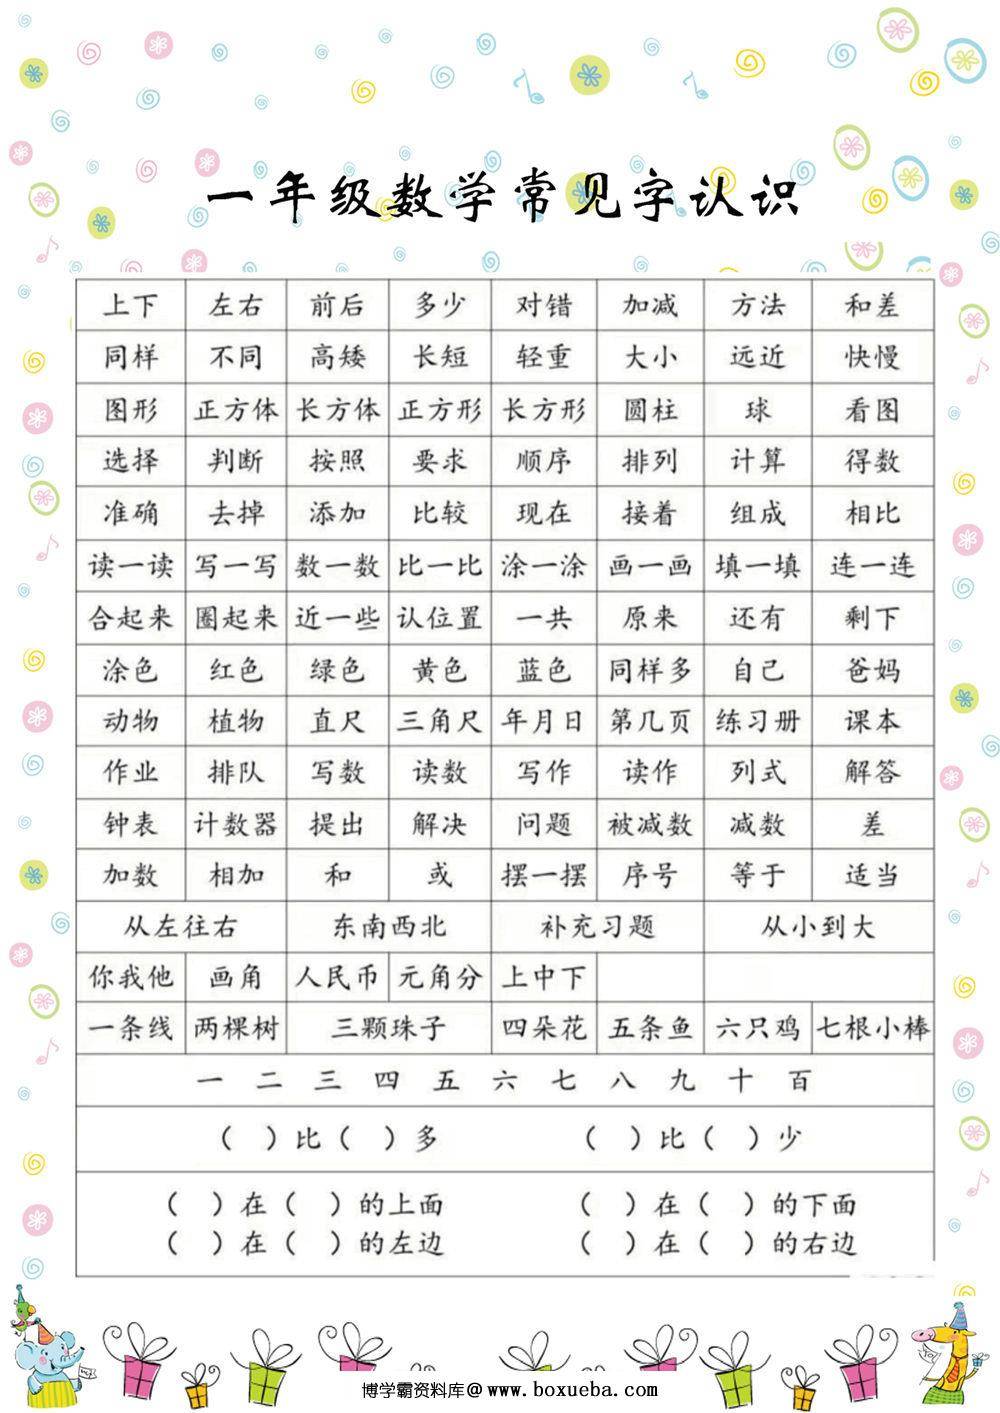 一年级数学常见字认识
上下 左右 前后 多少 对错 加减 方法 和差
同样 不同 高矮 长短 轻重 大小 远近 快慢
图形 正方体 长方体 正方形 长方形 圆柱 球 看图
选择 判断 按照 要求 顺序 排列 计算 得数
准确 去掉 添加 比较 现在 接着 组成 相比
读一读 写一写 数一数 比一比 涂一涂 画一画 填一填 连一连
合起来 圈起来 近一些 认位置 一共 原来 还有 剩下
涂色 红色 绿色 黄色 蓝色 同样多 自己 爸妈
动物 植物 直尺 三角尺 年月日 第几页 练习册 课本
作业 排队 写数 读数 写作 读作 列式 解答
钟表 计数器 提出 解决 问题 被减数 减数 差
加数 相加 和 或 摆一摆 序号 等于 适当
从左往右 东南西北 补充习题 从小到大
你我他 画角 人民币 元角分 上中下
一条线 两棵树 三颗珠子 四朵花 五条鱼 六只鸡 七根小棒
一 二 三 四 五 六 七 八 九 十 百
（ ）比（ ）多 （ ）比（ ）少
（ ）在（ ）的上面 （ ）在（ ）的下面
（ ）在（ ）的左边 （ ）在（ ）的右边
博学霸资料库@www.boxueba.com